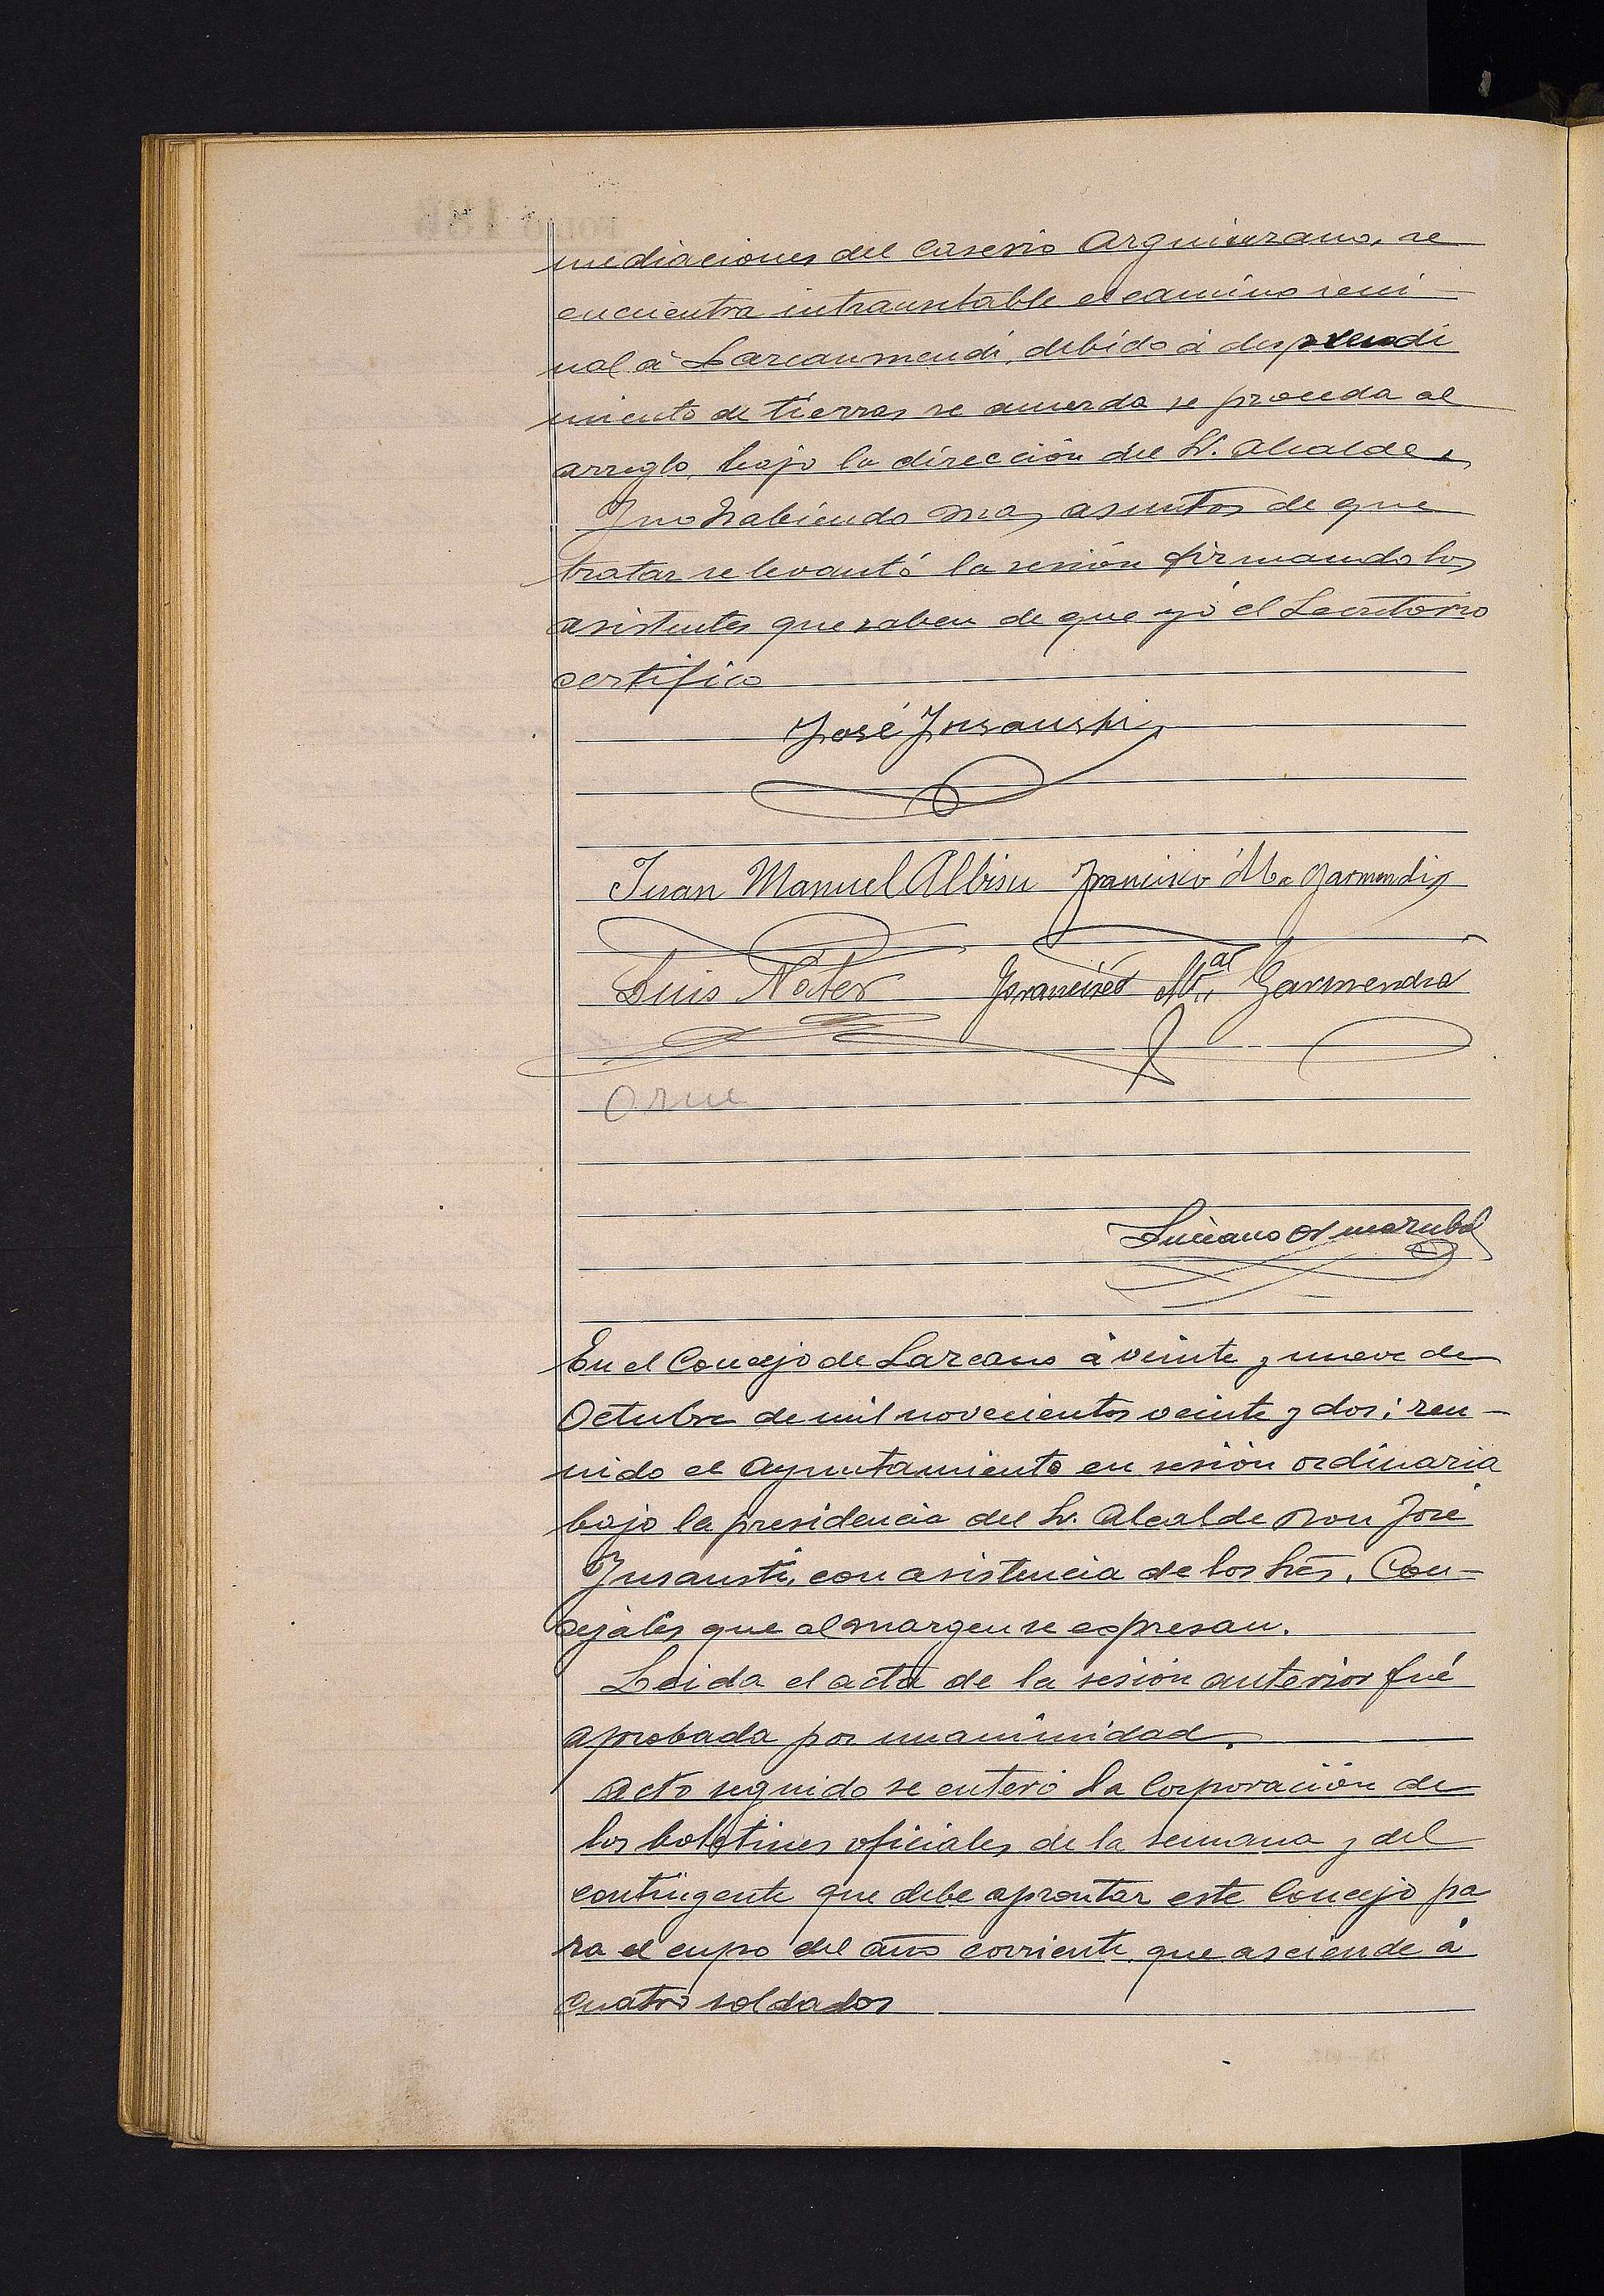 mediaciones del caserio Arguinzano, se
encuentra intransitable el camino veci-
nal á Lazcaumendi, debido á desprendi
miento de tierras se acuerda se proceda al
arreglo, bajo la dirección del Sr. Alcalde.
Y no habiendo mas asuntos de que
tratar se levantó la sesión firmando los
asistentes que saben de que yó el Secretario
certifico
José Insausti
Juan Manuel Albisu Francisco M. Garmendia
Luis Francisco M.ª Garmendia
Orue
Luciano
En el Concejo de Lazcano á veinte y nueve de
Octubre de mil novecientos veinte y dos; reu-
nido el Ayuntamiento en sesión ordinaria
bajo la presidencia del Sr. Alcalde Don José
Insausti, con asistencia de los Srēs. Con-
cejales que al margen se expresan.
Leida el acta de la sesión anterior fué
aprobada por unanimidad.
Acto seguido se enteró la Corporación de
los boletines oficiales de la semana y del
contingente que debe aprontar este Concejo pa
ra el cupo del año corriente que asciende á
cuatro soldados